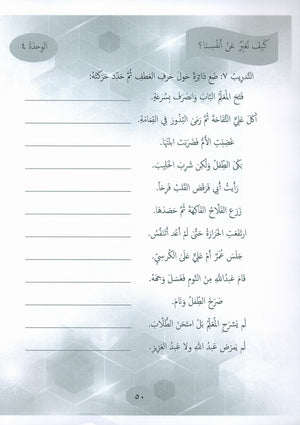 كَيْفَ نُعَبِّرُ عَنْ أَنْفُسِنَا؟
الوحدة ٤
التدريب ٧: ضع دائرة حول حرف العطف ثم حدّد حركته:
فتح المعلم الباب وانصرف بسرعة.
أكل علي التفاحة ثم رمى البذور في القمامة.
غضبت الأم فضربت ابنتها.
بكى الطفل ولكن شرب الحليب.
رأيت أبي فرقص القلب فرحاً.
زرع الفلاح الفاكهة ثم حصدها.
ارتفعت الحرارة حتى لم أعد أتنفس.
جلس عمر أم علي على الكرسي.
قام عبدالله من النوم فغسل وجهه.
صرخ الطفل ونام.
لم يشرح المعلم بل امتحن الطلاب.
لم يمرض عبد الله ولا عبد العزيز.
٥٠